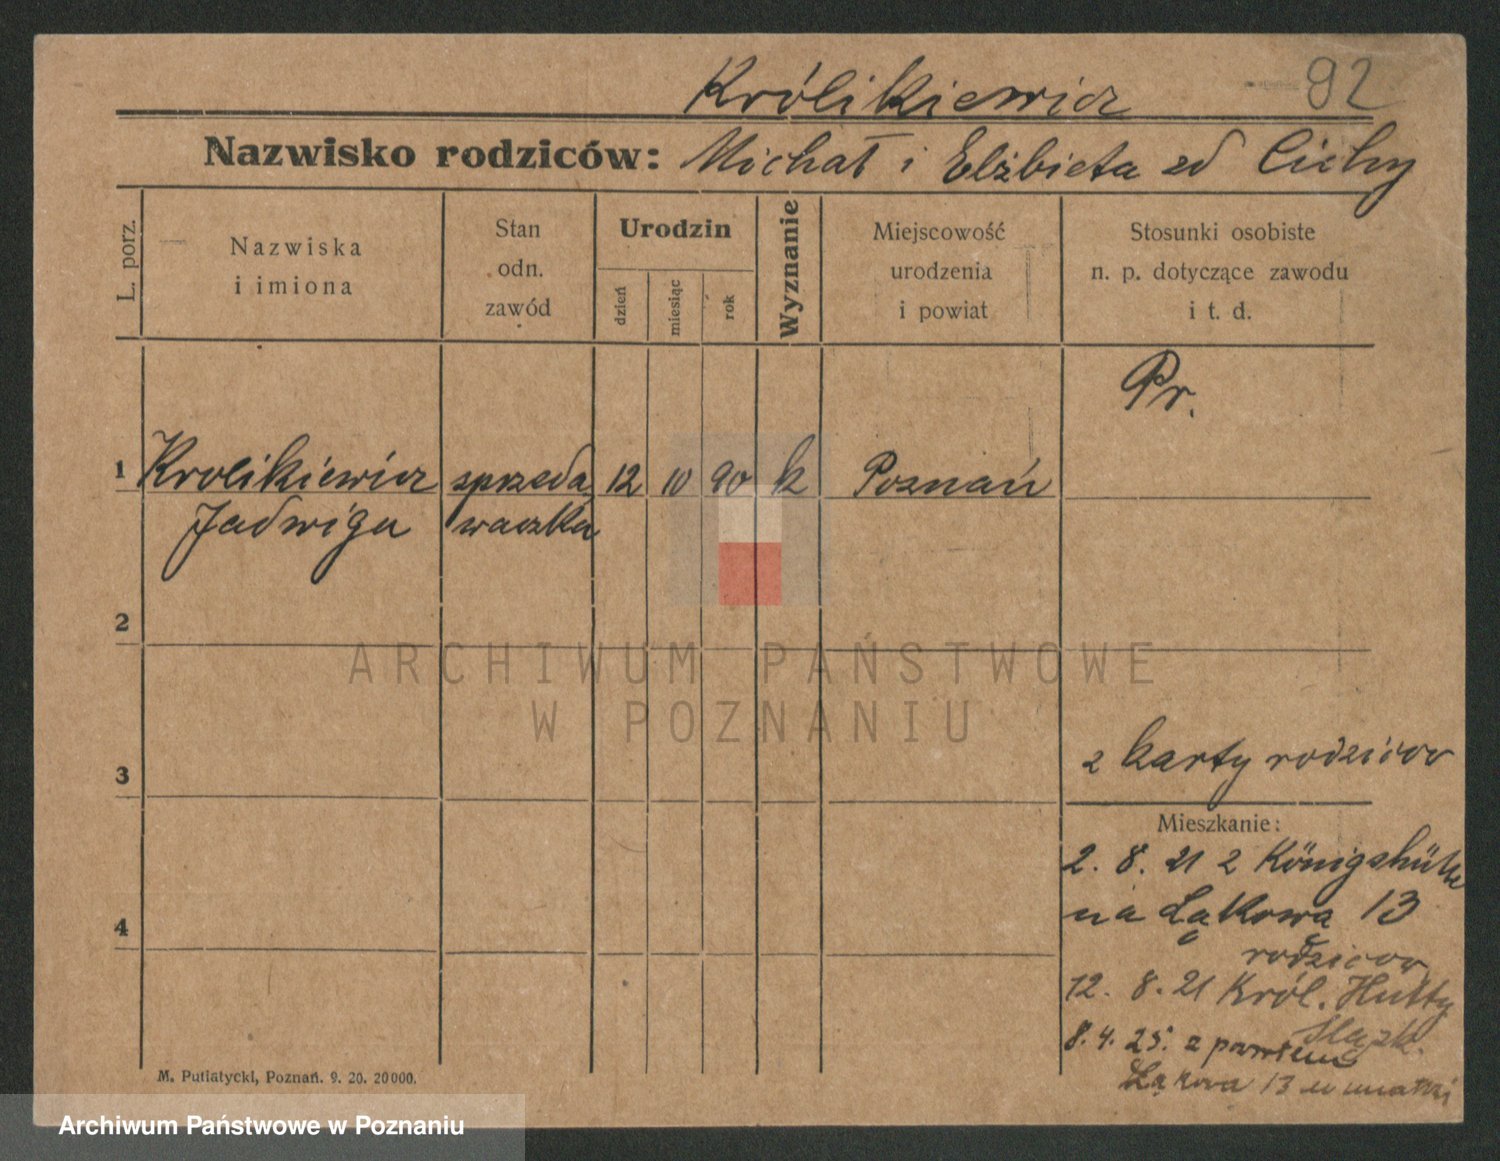 Królikiewicz
92
Nazwisko rodziców: Michał i Elżbieta zd Cichy
L. porz.
Nazwiska
i imiona
Stan
odn.
zawód
Urodzin
dzień
miesiąc
rok
Wyznanie
Miejscowość
urodzenia
i powiat
Stosunki osobiste
n. p. dotyczące zawodu
i t. d.
Pr.
1 Krolikiewicz sprzeda 12 10 90 k Poznań
Jadwiga waczka
2
ARCHIWUM PAŃSTWOWE
W POZNANIU
3
z karty rodziców
Mieszkanie:
2. 8. 21 z Königshütte
na Łąkowa 13
4
rodziców
12. 8. 21 Król. Hutty
Slązk.
8. 4. 25. z
Łąkowa 13 u matki
M. Putiatycki, Poznań. 9. 20. 20000.
Archiwum Państwowe w Poznaniu